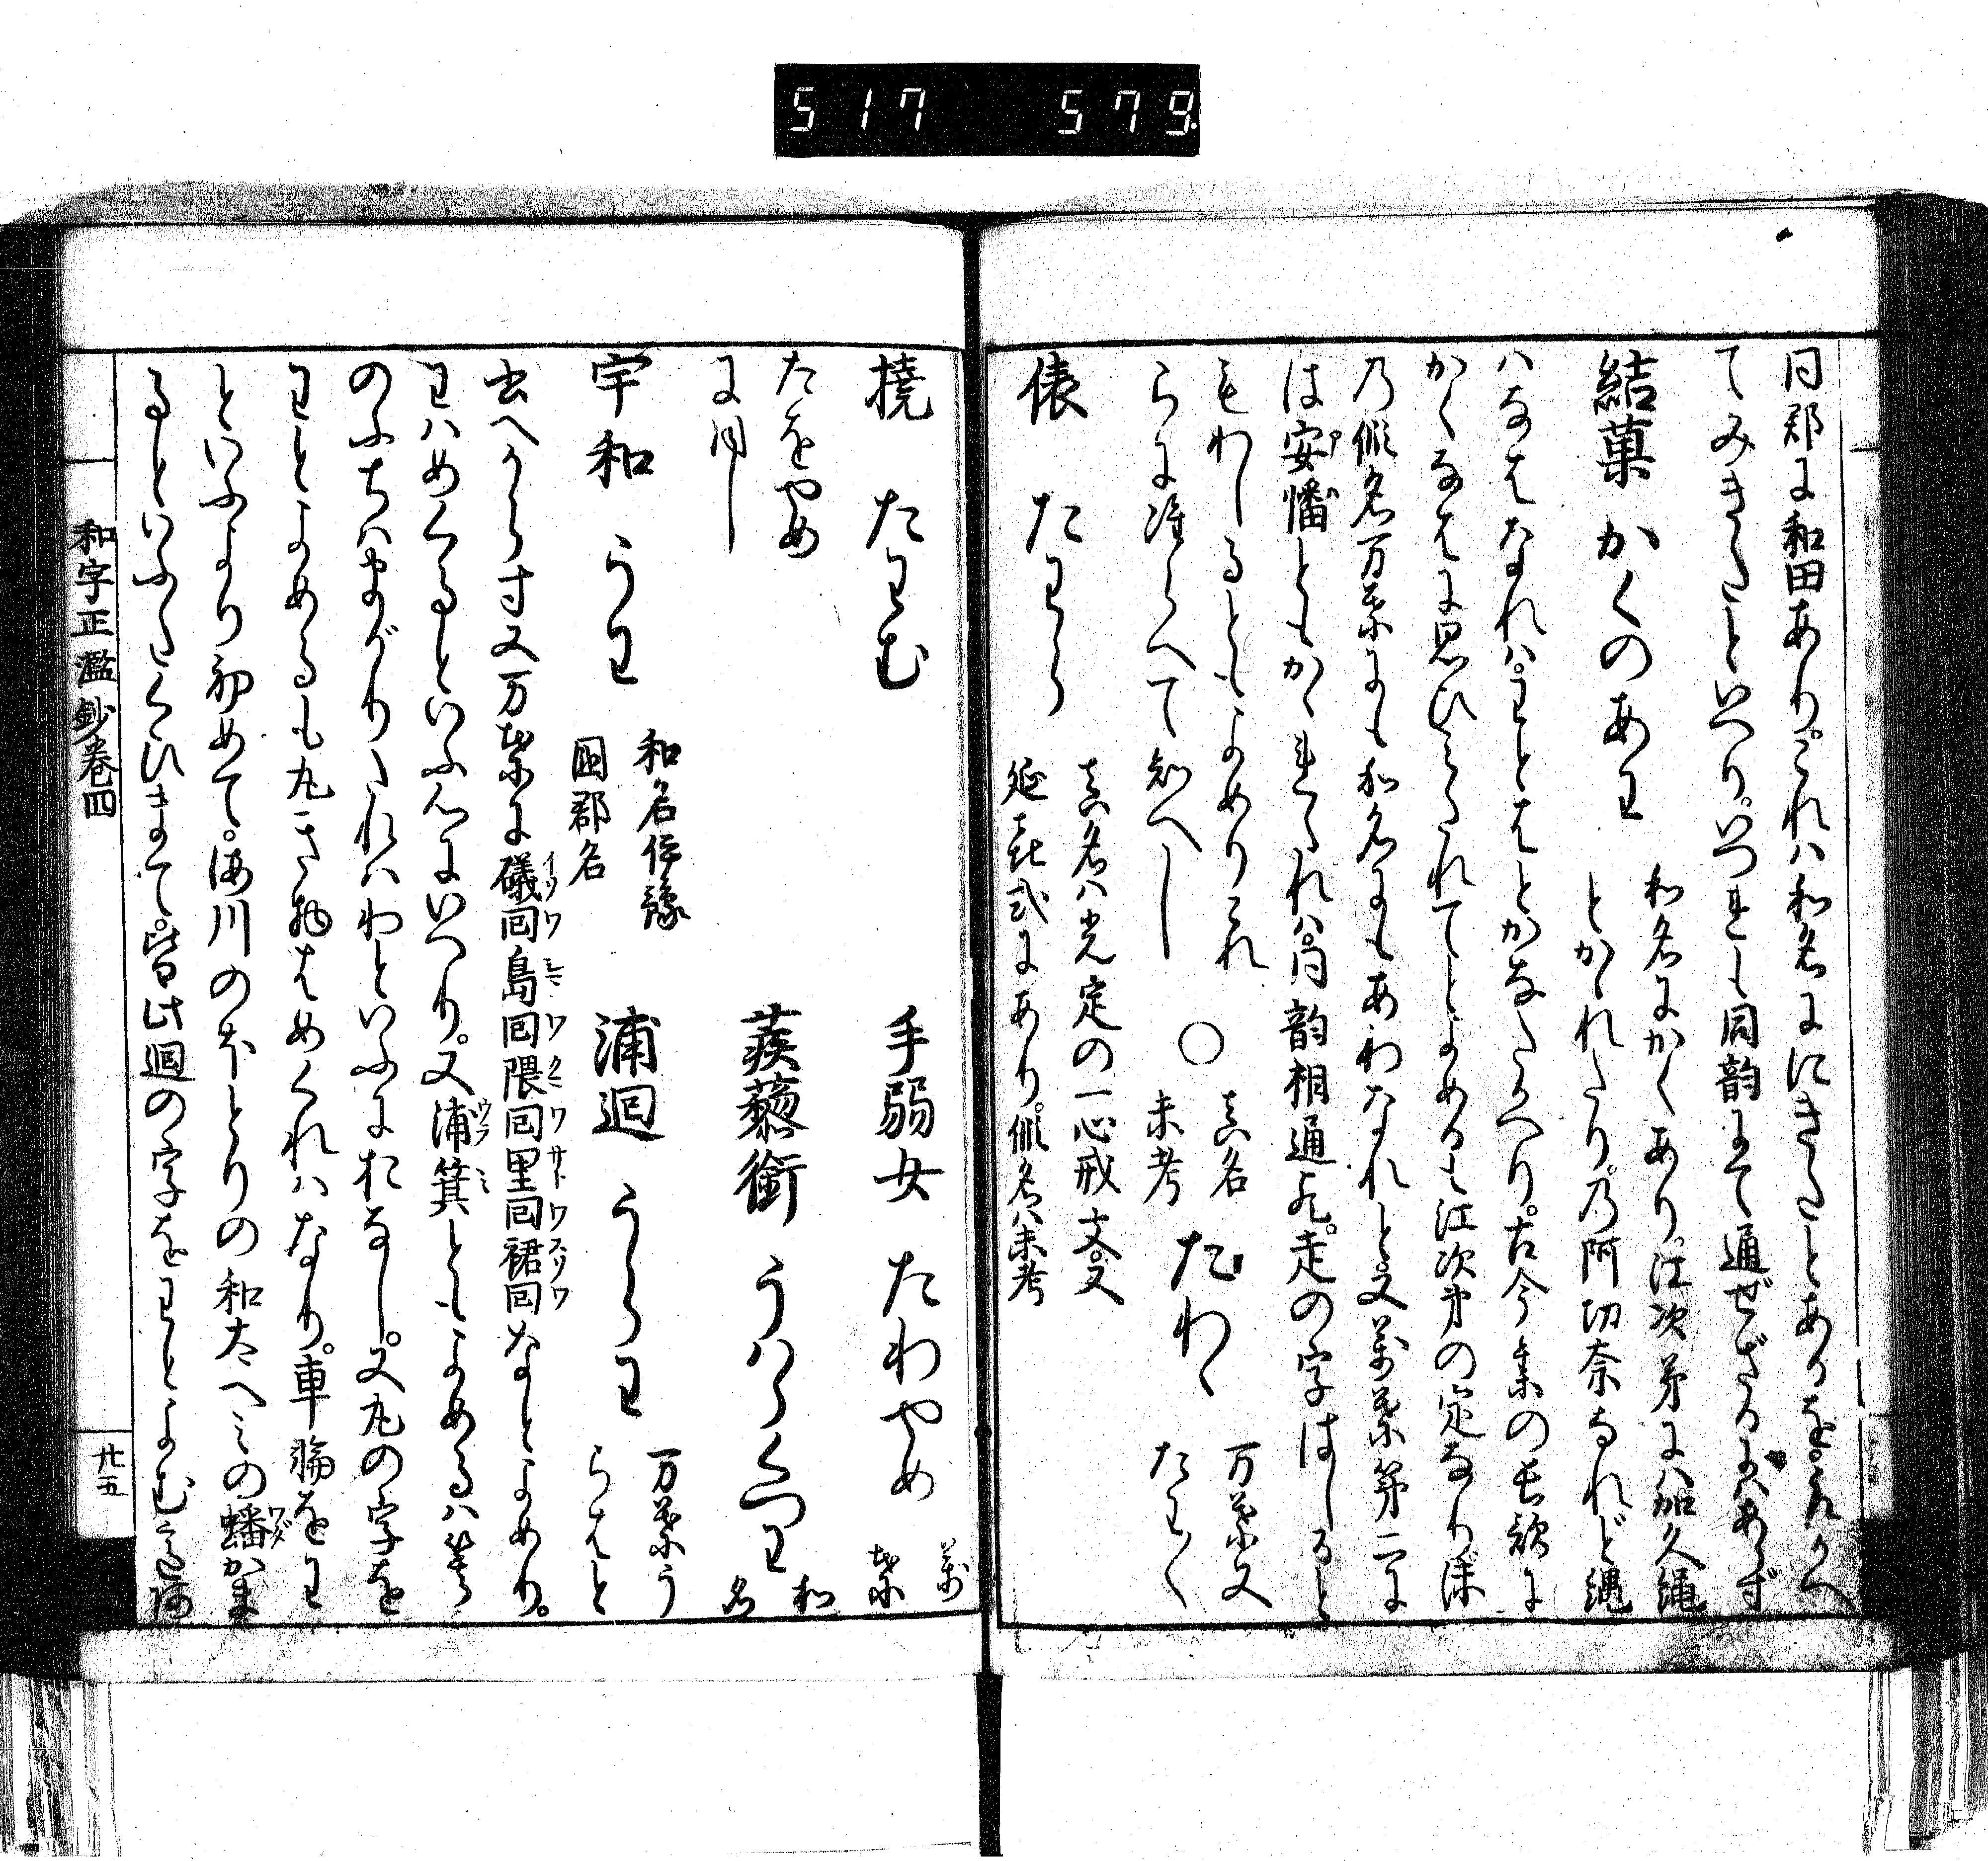 517 579
同郡に和田あり。これハ和名ににきたとあるをうたかへ
てみきたといへり。いつれも同韻にて通ぜざるにハあらず
結菓 かくのあわ
和名にかくあり。江次第に八加久縄
とかゝれたり。乃阿切奈なれど縄
ハなはなれハ。わとはとかなたかへり。古今集の長歌に
かくなはに思ひみたれてとよめるも江次第の定なり
乃假名万葉にも和名にもあわなれと。又萬葉第二に
は安幡ともかゝれたれハ。同韻相通歟。走の字はしると
もわしるともよめりこれ
らに准らへて知へし
○
真名
未考
たわゝ
万葉又
たわゝ
俵 たわら
真名ハ光定の一心戒文。又
延喜式にあり。假名ハ未考
撓 たわむ
手弱女 たわやめ
萬
葉
たをやめ
に同し
蒺蔾銜 うハらくつわ
和
名
宇和 うわ
和名伊豫
國郡名
浦廻 うらわ
万葉う
らはと
云へからす又万葉に礒回島回隈回里回裾回なとよめり。
イソワ シマワ クマワ サトワ スソワ
わハめくるといふ心にいへり。又浦箕ともよめるハ箕
ウラミ
のふちハまがりたれハわといふにおなし。又丸の字を
わとよめるも丸き物はめくれハなり。車輪をわ
といふより初めて。海川のほとりの和太へみの蟠かま
ワダ
るといふたくひまて。皆此廻の字をわとよむ
和字正濫鈔卷四
廿五